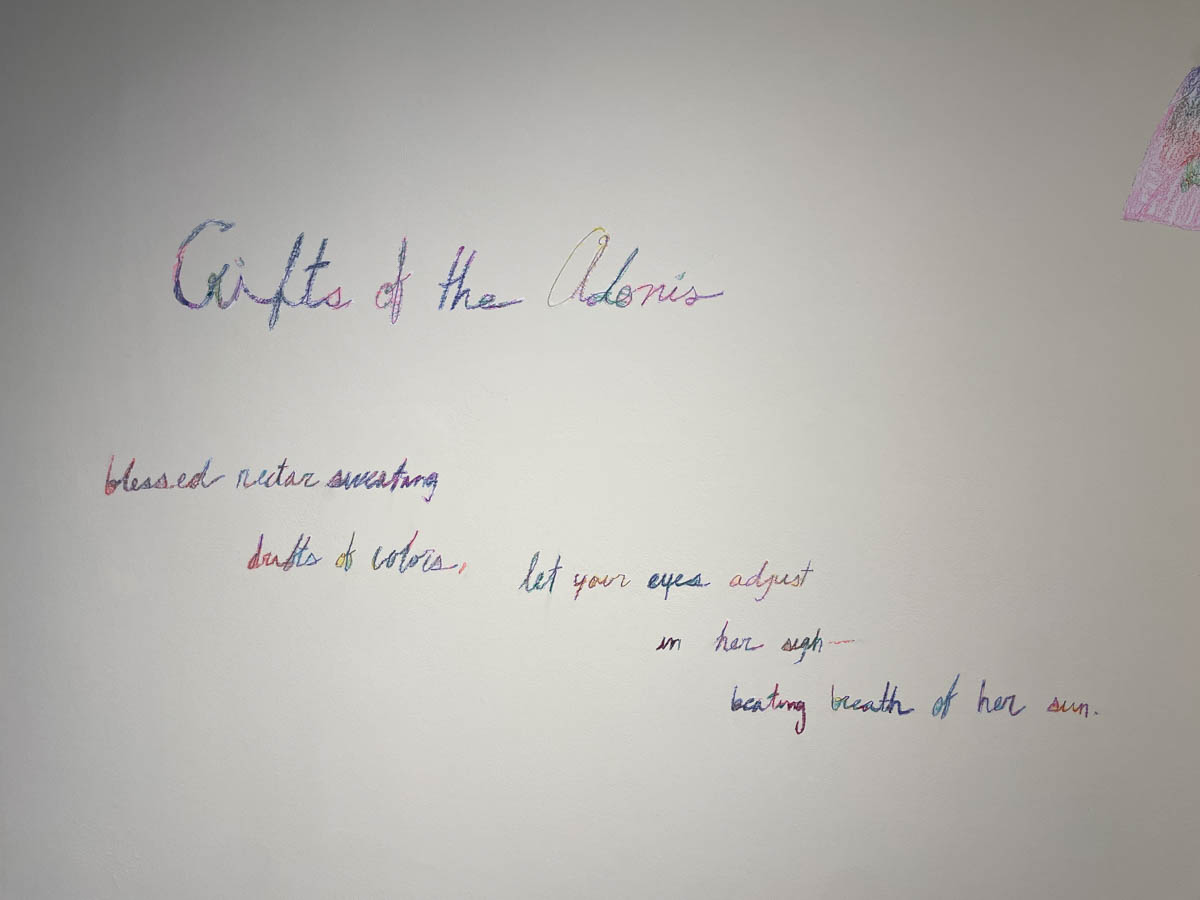 Gifts of the Adonis
blessed nectar sweating
drifts of colors,
let your eyes adjust
in her sigh—
beating breath of her sun.